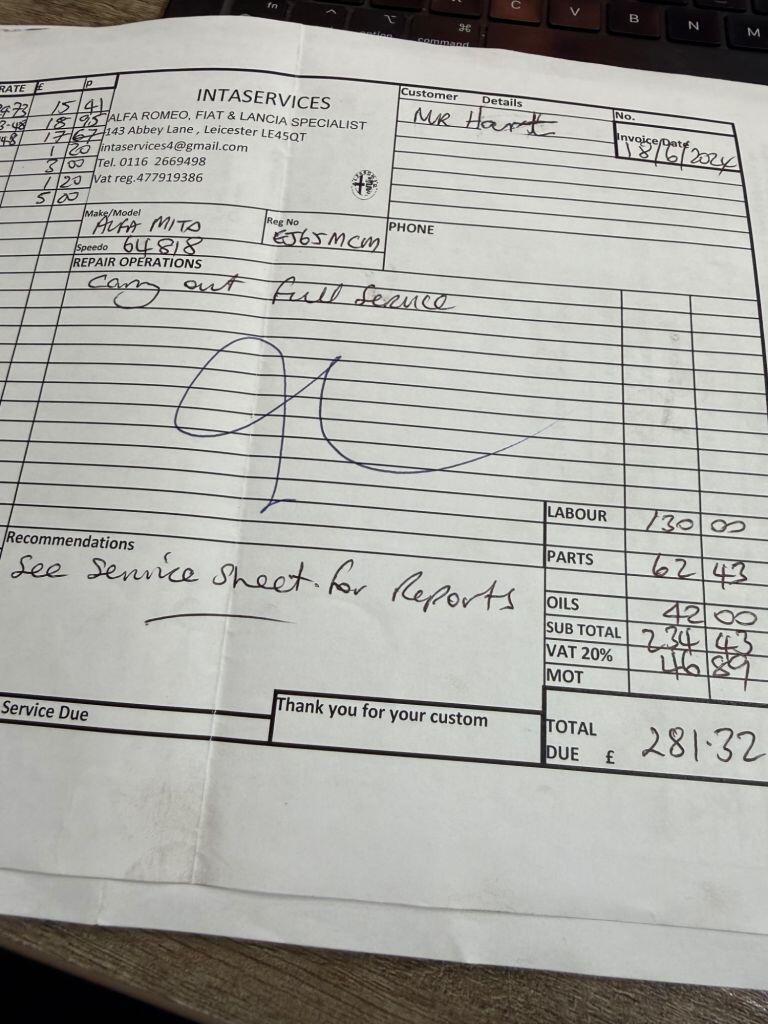 fn
option
command
C V B N M
RATE £ P
15 41
18 95
17 67
1 20
3 00
1 20
5 00
INTASERVICES
ALFA ROMEO, FIAT & LANCIA SPECIALIST
143 Abbey Lane , Leicester LE45QT
intaservices4@gmail.com
Tel. 0116 2669498
Vat reg.477919386
Customer Details
MR Hart
No.
Invoice/Date
18/6/2024
PHONE
Make/Model
ALFA MITO
Reg No
EJ65MCM
Speedo 64818
REPAIR OPERATIONS
Carry out full Service
LABOUR 130 00
PARTS 62 43
OILS 42 00
SUB TOTAL 234 43
VAT 20% 46 89
MOT
Recommendations
See Service Sheet. for Reports
Service Due
Thank you for your custom
TOTAL
DUE £ 281.32